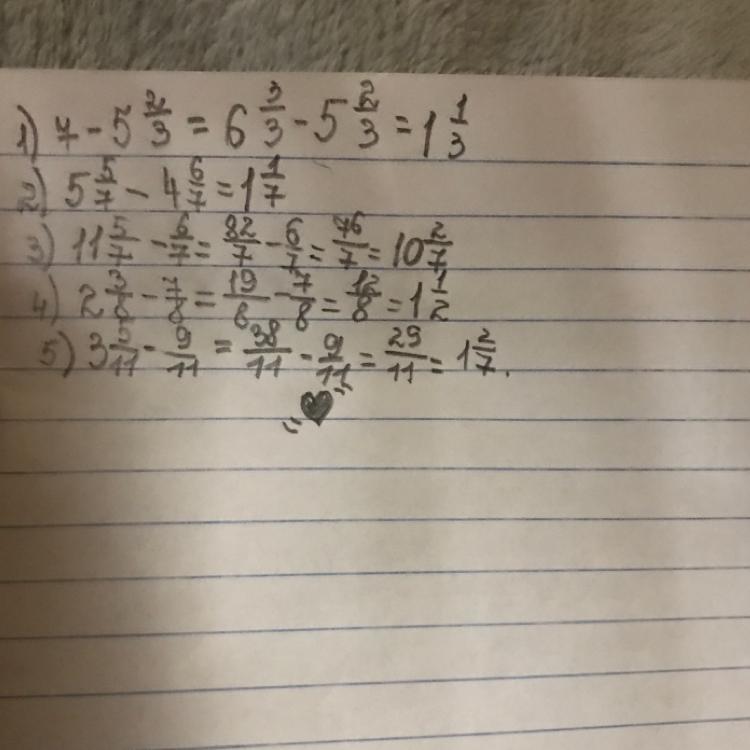 1) 7 - 5 2/3 = 6 3/3 - 5 2/3 = 1 1/3
2) 5 5/7 - 4 6/7 = 1 1/7
3) 11 5/7 - 6/7 = 82/7 - 6/7 = 76/7 = 10 2/7
4) 2 3/8 - 7/8 = 19/8 - 7/8 = 12/8 = 1 1/2
5) 3 5/11 - 9/11 = 38/11 - 9/11 = 29/11 = 1 2/7.